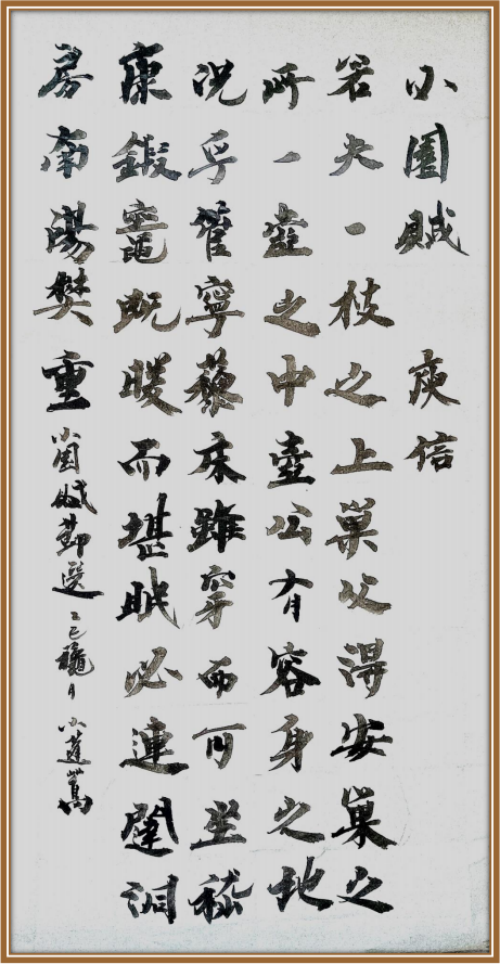 小園賦 庾信
若夫一枝之上巢父得安巢之
所一壺之中壺公有容身之地
況乎管寧藜床雖穿而可坐嵇
康鍛竈既暖而堪眠必連闥洞
房南陽樊重 小園賦莭選 乙巳龝月 小蓮